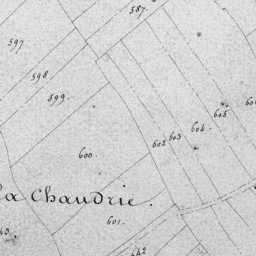 587
597
598
599
600
602
603
604
605
La Chaudrie.
601